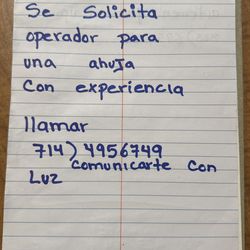 Se Solicita
operador para
una ahuja
Con experiencia
llamar
714) 4956749
comunicarte con
Luz